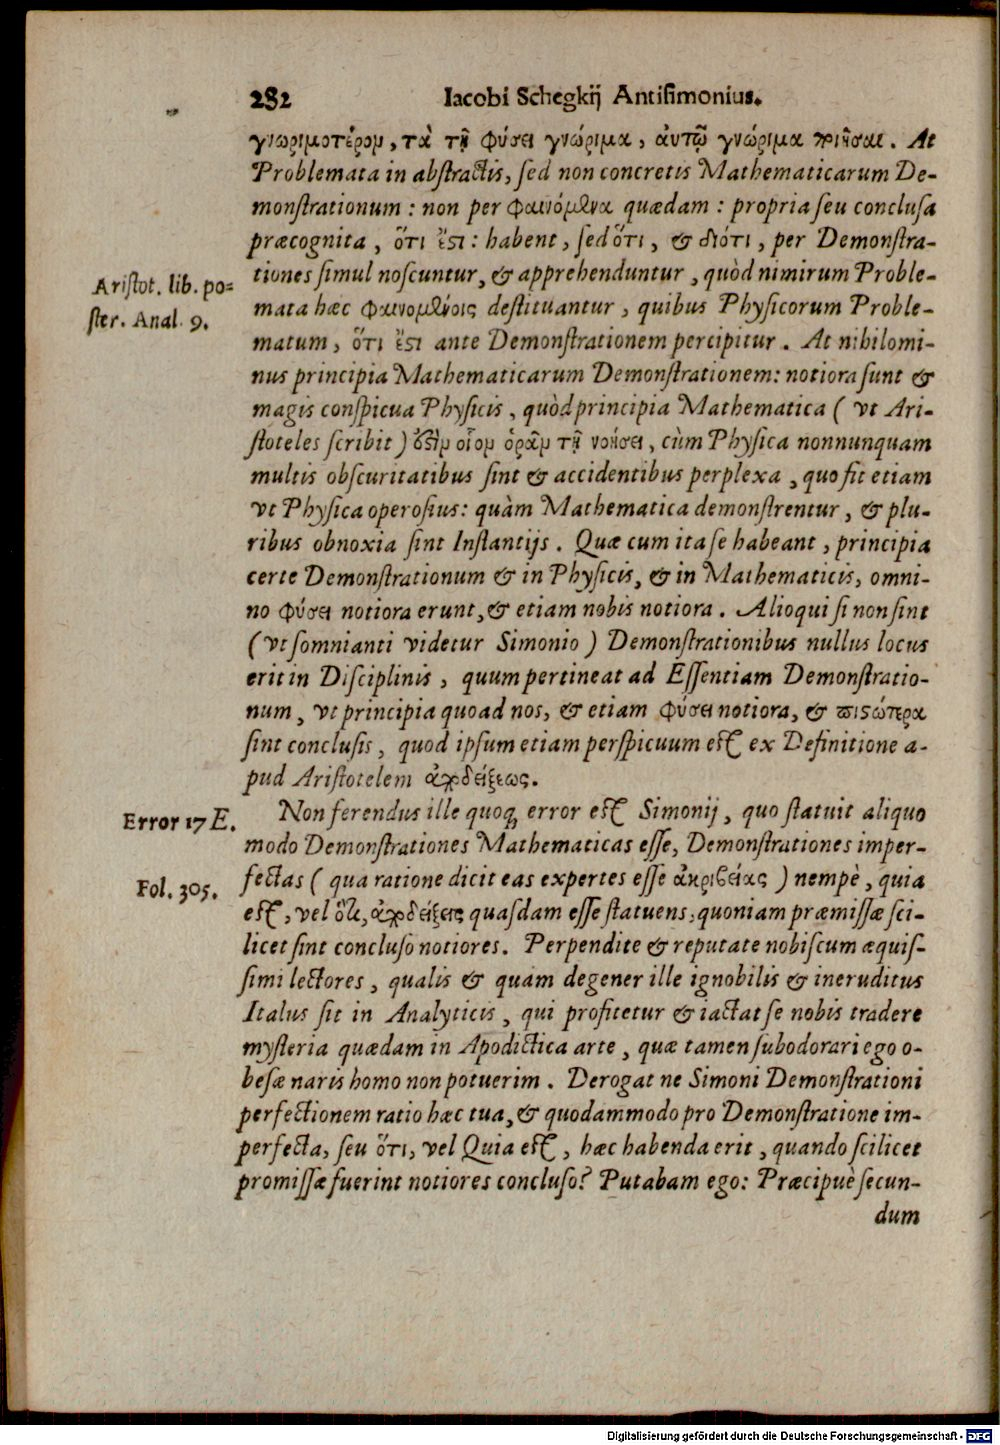 282 Iacobi Schegkij Antisimonius.
γνωριμοτέρον, τὰ τῇ φύσει γνώριμα, αὐτῷ γνώριμα ποιῆσαι. At
Problemata in abstractis, sed non concretis Mathematicarum De-
monstrationum: non per φαινόμενα quædam: propria seu conclusa
præcognita, ὅτι ἔστι: habent, sed ὅτι, & διότι, per Demonstra-
tiones simul noscuntur, & apprehenduntur, quòd nimirum Proble-
Aristot. lib. po=
ster. Anal. 9.
mata hæc φαινομένοις destituantur, quibus Physicorum Proble-
matum, ὅτι ἔστι ante Demonstrationem percipitur. At nihilomi-
nus principia Mathematicarum Demonstrationem: notiora sunt &
magis conspicua Physicis, quòd principia Mathematica (vt Ari-
stoteles scribit) ἐστὶν οἷον ὁρᾶν τῇ νοήσει, cùm Physica nonnunquam
multis obscuritatibus sint & accidentibus perplexa, quo fit etiam
vt Physica operosius: quàm Mathematica demonstrentur, & plu-
ribus obnoxia sint Instantijs. Quæ cum ita se habeant, principia
certe Demonstrationum & in Physicis, & in Mathematicis, omni-
no φύσει notiora erunt, & etiam nobis notiora. Alioqui si non sint
(vt somnianti videtur Simonio) Demonstrationibus nullus locus
erit in Disciplinis, quum pertineat ad Essentiam Demonstratio-
num, vt principia quoad nos, & etiam φύσει notiora, & πιστώτερα
sint conclusis, quod ipsum etiam perspicuum est ex Definitione a-
pud Aristotelem ἀποδείξεως.
Error 17 E.
Non ferendus ille quoq; error est Simonij, quo statuit aliquo
modo Demonstrationes Mathematicas esse, Demonstrationes imper-
Fol. 305.
fectas (qua ratione dicit eas expertes esse ἀκριβείας) nempè, quia
est, vel ὅτι, ἀποδείξεις quasdam esse statuens, quoniam præmissæ sci-
licet sint concluso notiores. Perpendite & reputate nobiscum æquis-
simi lectores, qualis & quam degener ille ignobilis & ineruditus
Italus sit in Analyticis, qui profitetur & iactat se nobis tradere
mysteria quædam in Apodictica arte, quæ tamen subodorari ego o-
besæ naris homo non potuerim. Derogat ne Simoni Demonstrationi
perfectionem ratio hæc tua, & quodammodo pro Demonstratione im-
perfecta, seu ὅτι, vel Quia est, hæc habenda erit, quando scilicet
promissæ fuerint notiores concluso? Putabam ego: Præcipuè secun-
dum
Digitalisierung gefördert durch die Deutsche Forschungsgemeinschaft - DFG